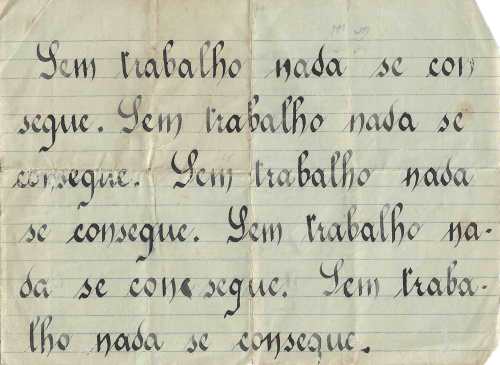 Sem trabalho nada se con
segue. Sem trabalho nada se
consegue. Sem trabalho nada
se consegue. Sem trabalho na-
da se con segue. Sem traba-
lho nada se consegue.